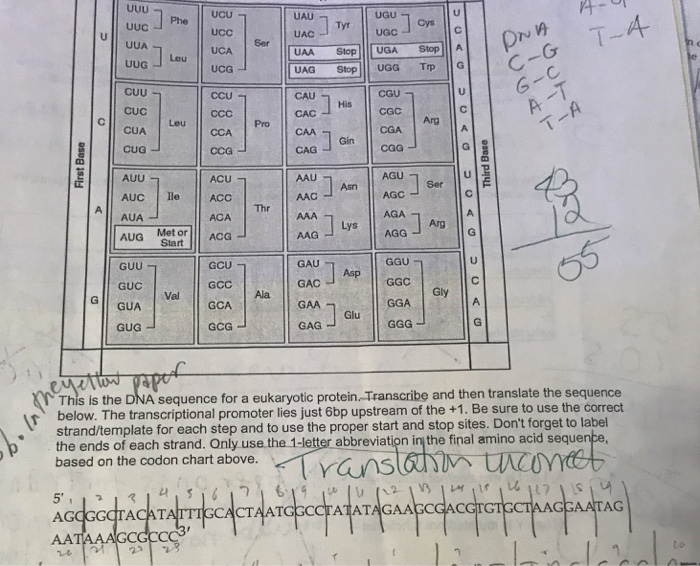 UUU UCU UAU UGU U
UUC Phe UCC UAC Tyr UGC Cys C
U UUA UCA Ser UAA Stop UGA Stop A
UUG Leu UCG UAG Stop UGG Trp G
CUU CCU CAU CGU U
C CUC CCC CAC His CGC C
CUA Leu CCA Pro CAA CGA Arg A
CUG CCG CAG Gin CGG G
First Base
Third Base
AUU ACU AAU AGU U
AUC Ile ACC AAC Asn AGC Ser C
A AUA ACA Thr AAA AGA A
AUG Met or Start ACG AAG Lys AGG Arg G
GUU GCU GAU GGU U
GUC GCC GAC Asp GGC C
G GUA Val GCA Ala GAA GGA Gly A
GUG GCG GAG Glu GGG G
DNA
C-G
G-C
A-T
T-A
T-A
43
12
55
b. In the yellow paper
This is the DNA sequence for a eukaryotic protein. Transcribe and then translate the sequence
below. The transcriptional promoter lies just 6bp upstream of the +1. Be sure to use the correct
strand/template for each step and to use the proper start and stop sites. Don't forget to label
the ends of each strand. Only use the 1-letter abbreviation in the final amino acid sequence,
based on the codon chart above.
Translation incorrect
5'
AGCGGCTACATATTTGCACTAATGGCCTATATAGAAGCGACGTGTGCTAAGGAATAG
AATAAAGCGCCC3'